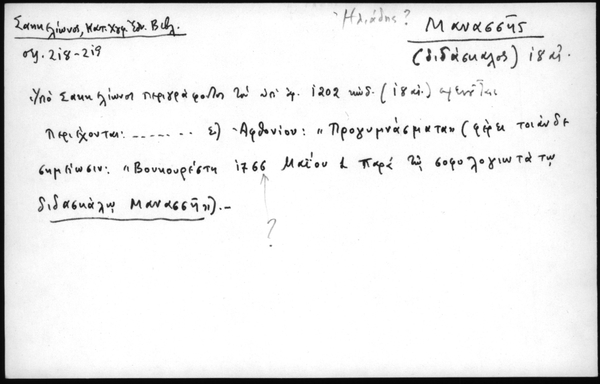 Σακκελίωνος, Κατ. Χγφ. Ἐθν. Βιβλ.
σσ. 218-219
Ἠλιάδης?
Μανασσῆς
(διδάσκαλος) 18 αἰ.
Ὑπὸ Σακκελίωνος περιγράφοντος τὸν ὑπ' ἀρ. 1202 κώδ. (18 αἰ.)
περιέχονται: ....... ε) Ἀφθονίου: "Προγυμνάσματα" (φέρει τοιάνδε
σημείωσιν: "Βουκουρέστη 1766 Μαΐου 2 παρὰ τῷ σοφολογιωτάτῳ
διδασκάλῳ Μανασσῇ"). —
?